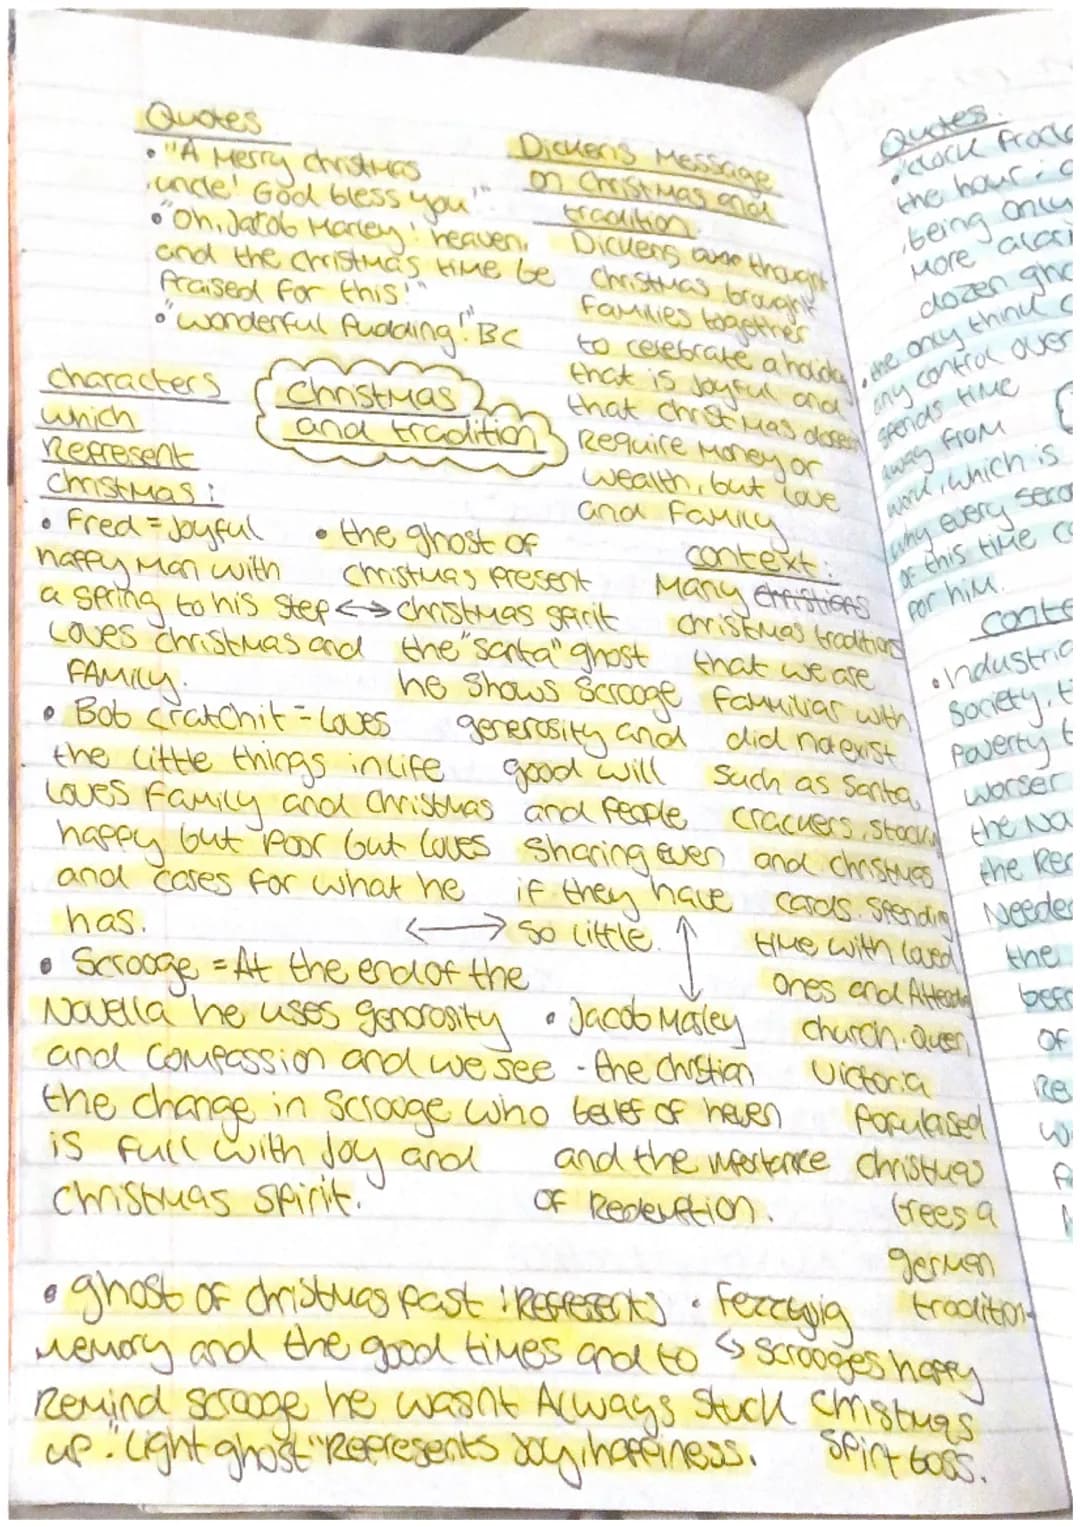 Quotes
• "A Merry christmas
uncle! God bless you"
• "Oh, Jacob Marley! heaven,
and the christmas time be
Praised for this!"
• "wonderful Pudding!" BC
Dickens Message
on Christmas and
tradition.
Dickens thought
Christmas brought
Families together
to celebrate a holiday
that is Joyful and
that christmas doesn
Require Money or
wealth, but love
and Family
Christmas
and tradition
characters
which
Represent
christmas:
• Fred = Joyful
happy Man with
a spring to his step <->
Loves christmas and
FAMily.
• Bob cratchit = Loves
the little things in life
Loves Family and Christmas
happy but Poor but loves
and cares for what he
has.
• Scrooge = At the end of the
Novella he uses generosity
and compassion and we see
the change in Scrooge who
is full with Joy and
Christmas spirit.
• the ghost of
Christmas Present
christmas spirit
the "santa" ghost
he shows Scrooge
generosity and
good will
and People
sharing even
if they have
<-> so little.
• Jacob Marley
- the christian
belief of heven
and the importance
of Redemption.
context:
Many christians
christmas traditions
that we are
Familiar with
did not exist
such as Santa,
crackers, stock
and christmas
cards. Spending
time with loved
ones and Attend
church. Queen
Victoria
Popularised
christmas
trees a
german
tradition
• ghost of christmas past : Represents
memory and the good times and to
Remind scrooge he wasnt Always stuck
up. "Light ghost" Represents Joy, happiness.
• Fezziwig
↳ scrooges happy
Christmas
Spirit boss.
Quotes.
• "clock
the hour:
being only
More
dozen
• the only thing
any control over
spends time
away from
work, which is
why every seco
of this time
for him.
conte
• Industria
society, t
Poverty t
worser
the
the
Neede
the
befo
of
Re
w